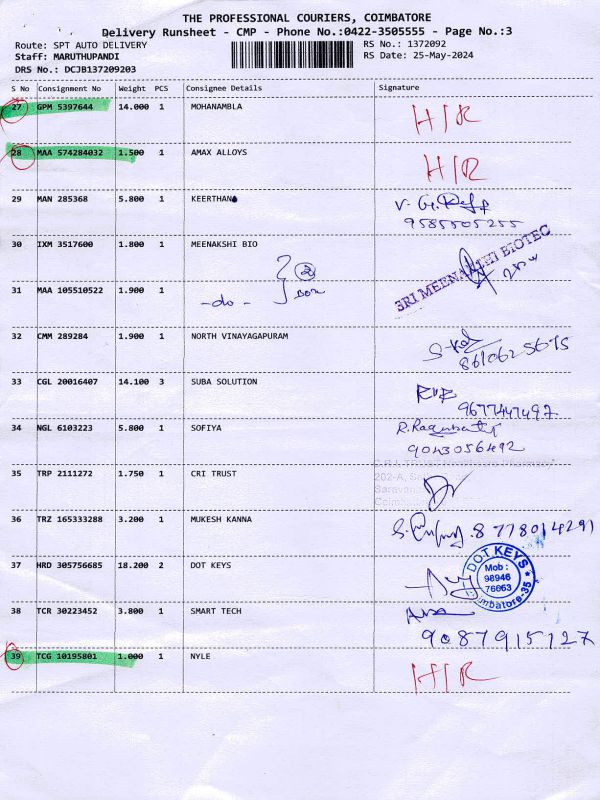 THE PROFESSIONAL COURIERS, COIMBATORE
Delivery Runsheet - CMP - Phone No.:0422-3505555 - Page No.:3
Route: SPT AUTO DELIVERY
RS No.: 1372092
Staff: MARUTHUPANDI
RS Date: 25-May-2024
DRS No.: DCJB137209203
S No Consignment No Weight PCS Consignee Details Signature
27 GPM 5397644 14.000 1 MOHANAMBLA H/R
28 MAA 574284032 1.500 1 AMAX ALLOYS H/R
29 MAN 285368 5.800 1 KEERTHANA
9585505255
30 IXM 3517600 1.800 1 MEENAKSHI BIO SRI MEENAKSHI BIOTEC
2 Box
31 MAA 105510522 1.900 1 -do-
32 CMM 289284 1.900 1 NORTH VINAYAGAPURAM
8610625675
33 CGL 20016407 14.100 3 SUBA SOLUTION
9677447497
34 NGL 6103223 5.800 1 SOFIYA R. Ragupathy
9043056492
35 TRP 2111272 1.750 1 CRI TRUST
202-A,
36 TRZ 165333288 3.200 1 MUKESH KANNA 8778014291
37 HRD 305756685 18.200 2 DOT KEYS DOT KEYS
Mob :
98946
76663
Coimbatore-35
38 TCR 30223452 3.800 1 SMART TECH
9087915127
39 TCG 10195801 1.000 1 NYLE H/R